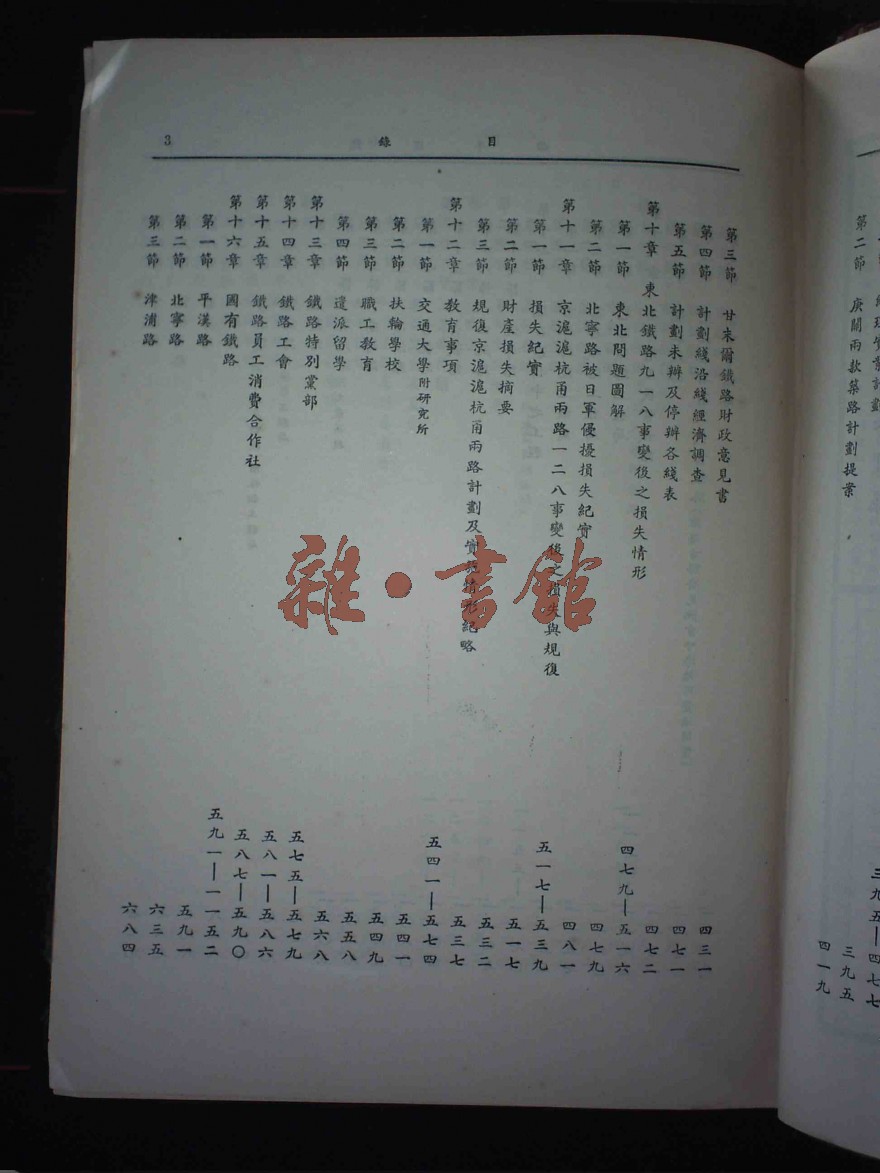 目錄 3
三九五—四七七
三九五
第二節 庚關兩款築路計劃提案 四一九
第三節 甘末爾鐵路財政意見書 四三一
第四節 計劃綫沿綫經濟調查 四七一
第五節 計劃未辦及停辦各綫表 四七二
第十章 東北鐵路九一八事變後之損失情形 四七九—五一六
第一節 東北問題圖解 四七九
第二節 北寧路被日軍侵擾損失紀實 四八一
第十一章 京滬滬杭甬兩路一二八事變後之損失與規復 五一七—五三九
第一節 損失紀實 五一七
第二節 財產損失摘要 五三二
第三節 規復京滬滬杭甬兩路計劃及實施情形紀略 五三七
第十二章 教育事項 五四一—五七四
第一節 交通大學附研究所 五四一
第二節 扶輪學校 五四九
第三節 職工教育 五五八
第四節 遣派留學 五六八
第十三章 鐵路特別黨部 五七五—五七九
第十四章 鐵路工會 五八一—五八六
第十五章 鐵路員工消費合作社 五八七—五九〇
第十六章 國有鐵路 五九一—一一五二
第一節 平漢路 五九一
第二節 北寧路 六三五
第三節 津浦路 六八四
雜·書館